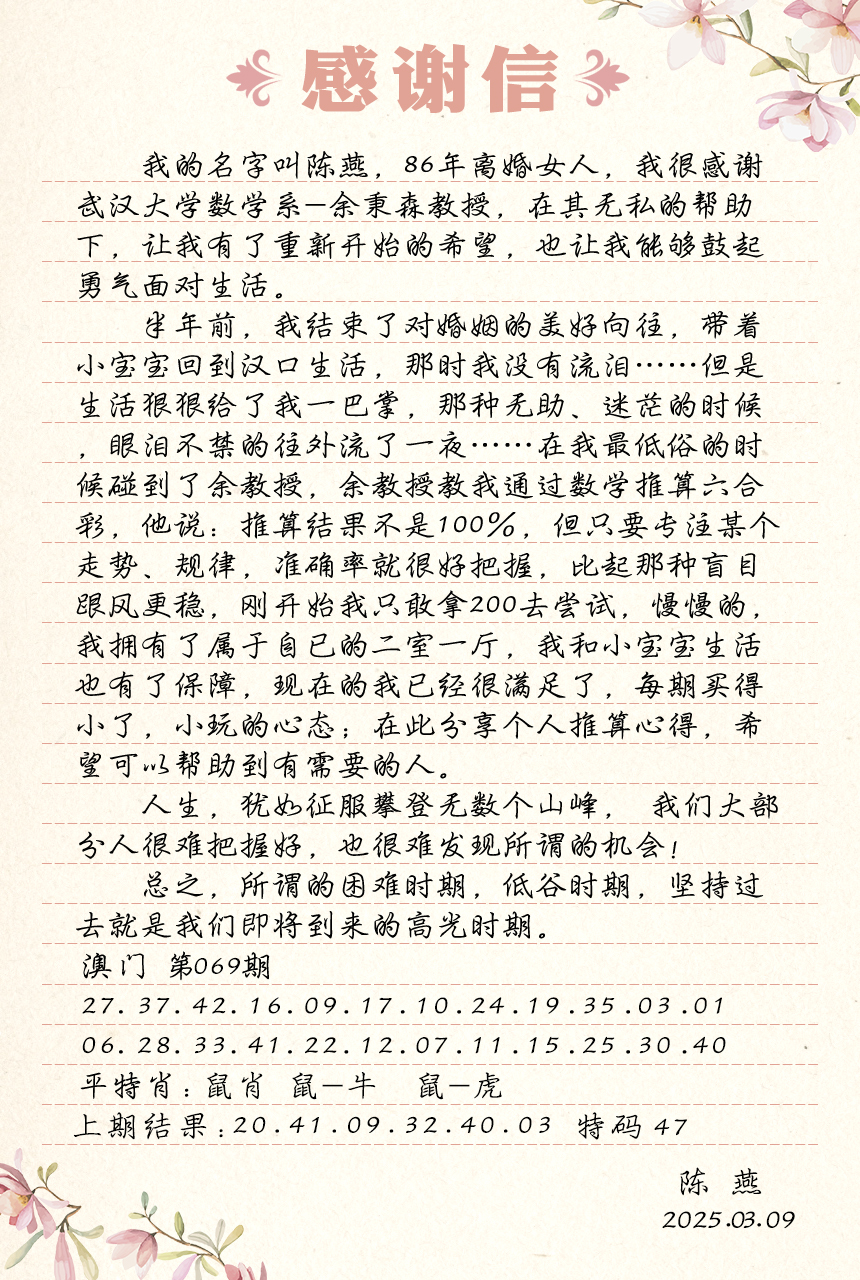 感谢信
我的名字叫陈燕，86年离婚女人，我很感谢
武汉大学数学系—余秉森教授，在其无私的帮助
下，让我有了重新开始的希望，也让我能够鼓起
勇气面对生活。
半年前，我结束了对婚姻的美好向往，带着
小宝宝回到汉口生活，那时我没有流泪……但是
生活狠狠给了我一巴掌，那种无助、迷茫的时候
，眼泪不禁的往外流了一夜……在我最低俗的时
候碰到了余教授，余教授教我通过数学推算六合
彩，他说：推算结果不是100%，但只要专注某个
走势、规律，准确率就很好把握，比起那种盲目
跟风更稳，刚开始我只敢拿200去尝试，慢慢的，
我拥有了属于自己的二室一厅，我和小宝宝生活
也有了保障，现在的我已经很满足了，每期买得
小了，小玩的心态；在此分享个人推算心得，希
望可以帮助到有需要的人。
人生，犹如征服攀登无数个山峰， 我们大部
分人很难把握好，也很难发现所谓的机会！
总之，所谓的困难时期，低谷时期，坚持过
去就是我们即将到来的高光时期。
澳门 第069期
27.37.42.16.09.17.10.24.19.35.03.01
06.28.33.41.22.12.07.11.15.25.30.40
平特肖：鼠肖 鼠—牛 鼠—虎
上期结果：20.41.09.32.40.03 特码 47
陈 燕
2025.03.09